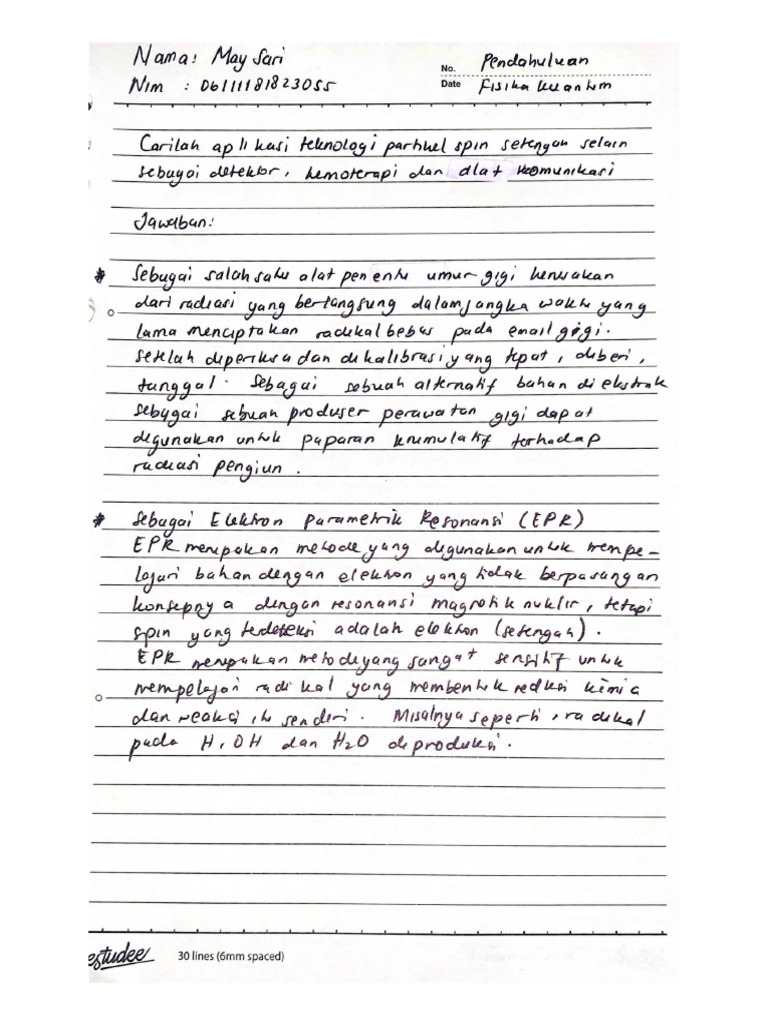 Nama: May Sari
Nim : 06111181823055
No. Pendahuluan
Date Fisika kuantum
Carilah aplikasi teknologi partikel spin setengah selain
sebagai detektor, kemoterapi dan alat komunikasi
Jawaban:
* Sebagai salah satu alat penentu umur gigi kerusakan
dari radiasi yang berlangsung dalam jangka waktu yang
lama menciptakan radikal bebas pada email gigi.
setelah diperiksa dan dikalibrasi yang tepat, diberi,
tanggal. Sebagai sebuah alternatif bahan di ekstrak
sebagai sebuah produser perawatan gigi dapat
digunakan untuk paparan krumulatif terhadap
radiasi pengiun.
* Sebagai Elektron Parametrik Resonansi (EPR)
EPR merupakan metode yang digunakan untuk mempe-
lajari bahan dengan elektron yang tidak berpasangan
konsepnya dengan resonansi magnetik nuklir, tetapi
spin yang terdeteksi adalah elektron (setengah).
EPR merupakan metode yang sangat sensitif untuk
mempelajari radikal yang membentuk reduksi kimia
dan reaksi itu sendiri. Misalnya seperti, radikal
pada H, OH dan H2O diproduksi.
estudee 30 lines (6mm spaced)